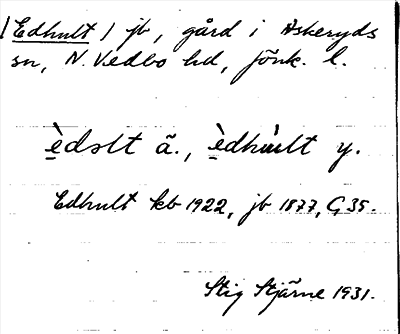 (Edhult) jb, gård i Askeryds
sn, N. Vedbo hd, Jönk. l.
èdslt ä., èdhùlt y.
Edhult kb 1922, jb 1877, G 35.
Stig Stjärne 1931.